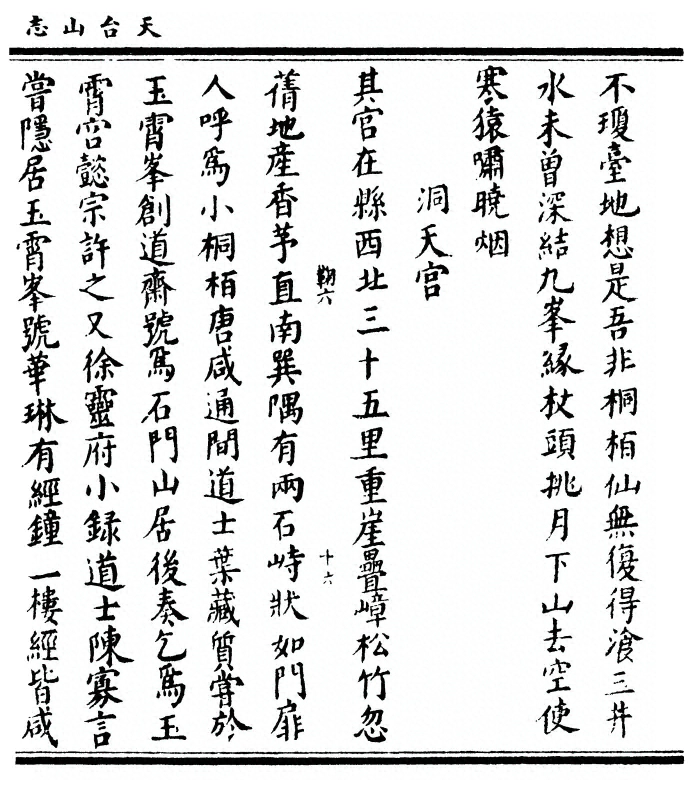 天台山志
不瓊臺地想是吾非桐栢仙無復得飡三井
水未曾深結九峯緣杖頭挑月下山去空使
寒猿嘯曉烟
洞天宫
其宫在縣西北三十五里重崖疊嶂松竹忽
蒨地産香茅直南巽隅有兩石峙狀如門扉
鞠六
十六
人呼爲小桐栢唐咸通間道士葉藏質嘗於
玉霄峯創道齋號爲石門山居後奏乞爲玉
霄宫懿宗許之又徐靈府小録道士陳寡言
嘗隱居玉霄峯號華琳有經鐘一樓經皆咸